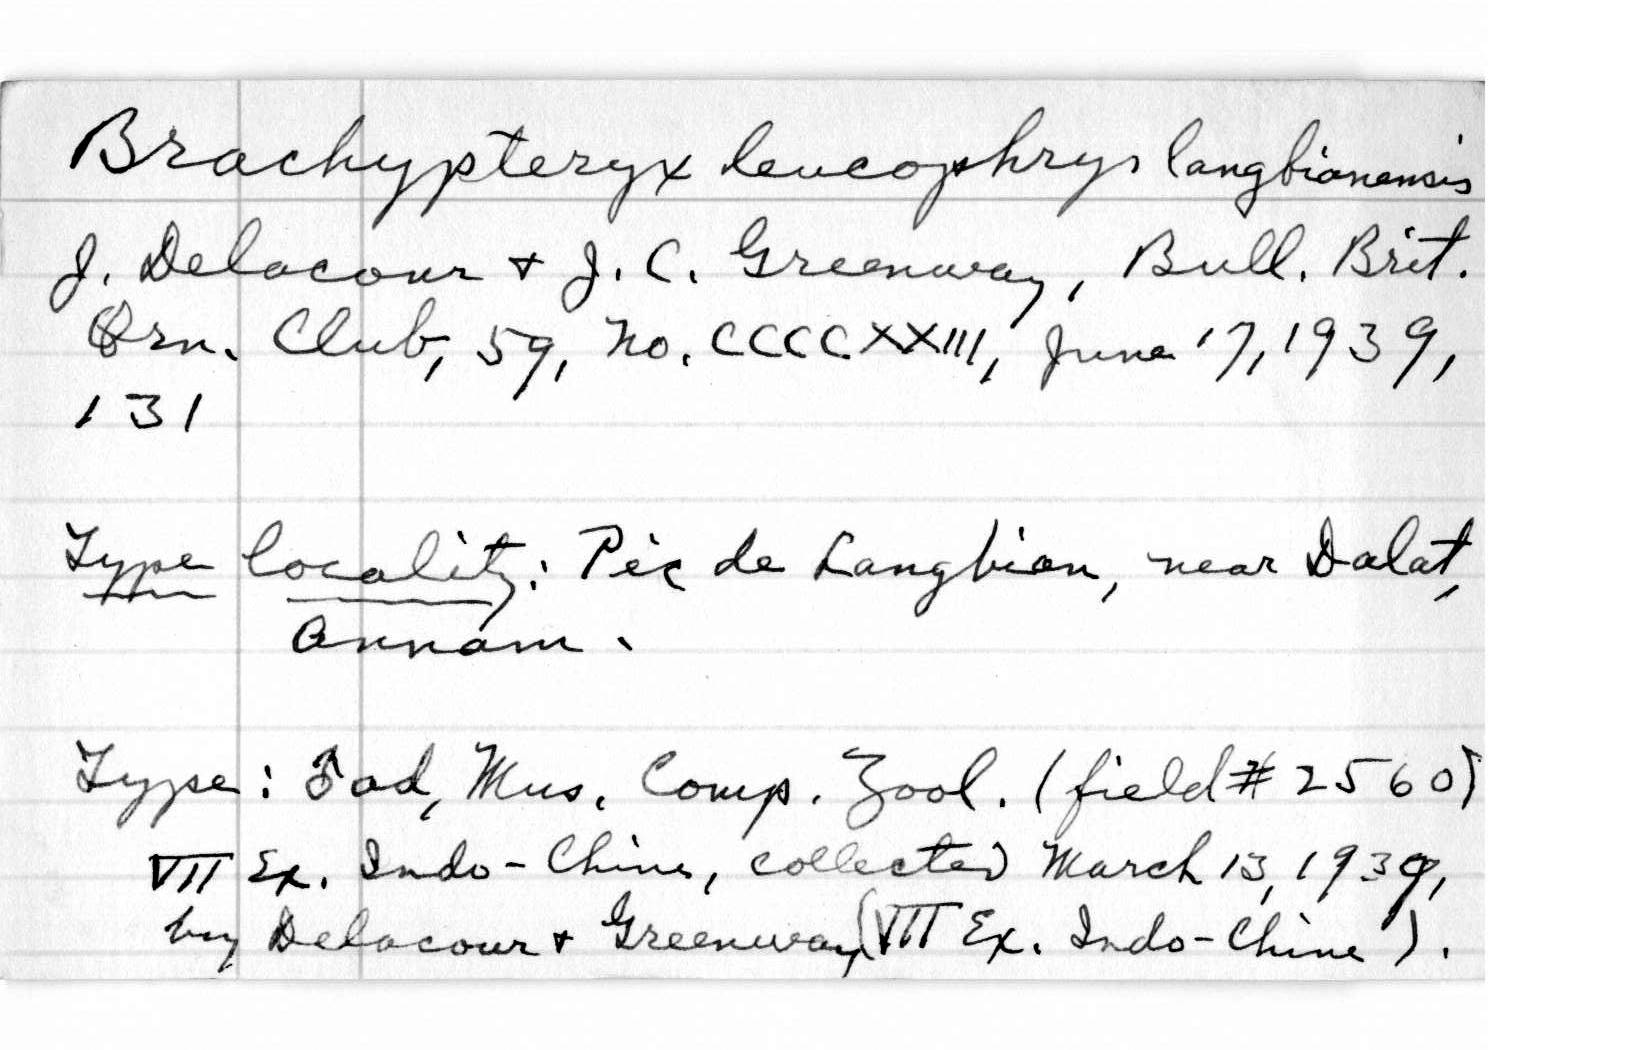 Brachypteryx leucophrys langbianensis
J. Delacour + J. C. Greenway, Bull. Brit.
Orn. Club, 59, no. CCCCXXIII, June 17, 1939,
131
Type locality: Pic de Langbian, near Dalat,
Annam.
Type: ♂ ad, Mus. Comp. Zool. (field # 2560)
VII Ex. Indo-Chine, collected March 13, 1939,
by Delacour + Greenway (VII Ex. Indo-Chine).